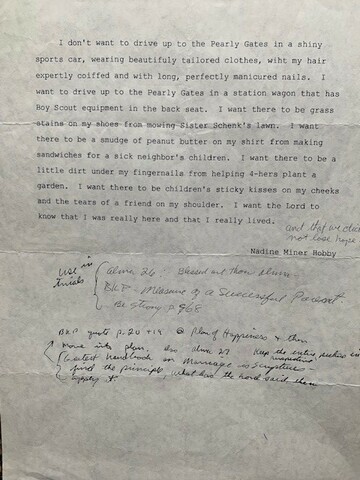 I don't want to drive up to the Pearly Gates in a shiny
sports car, wearing beautifuly tailored clothes, wiht my hair
expertly coiffed and with long, perfectly manicured nails. I
want to drive up to the Pearly Gates in a station wagon that has
Boy Scout equipment in the back seat. I want there to be grass
stains on my shoes from mowing Sister Schenk's lawn. I want
there to be a smudge of peanut butter on my shirt from making
sandwiches for a sick neighbor's children. I want there to be a
little dirt under my fingernails from helping 4-hers plant a
garden. I want there to be children's sticky kisses on my cheeks
and the tears of a friend on my shoulder. I want the Lord to
know that I was really here and that I really lived.
and that we did
not lose hope
Nadine Miner Hobby
Use in
trials
Alma 26: Blessed art thou
BKP - Measure of a Successful Parent
Be strong p 968
BKP quote p. 20 + 19 Plan of Happiness & then
move into plan. also alma 27 Keep the entire picture in
perspective
Greatest handbook on Marriage is Scriptures -
find the principle, what has the Lord said then
apply it